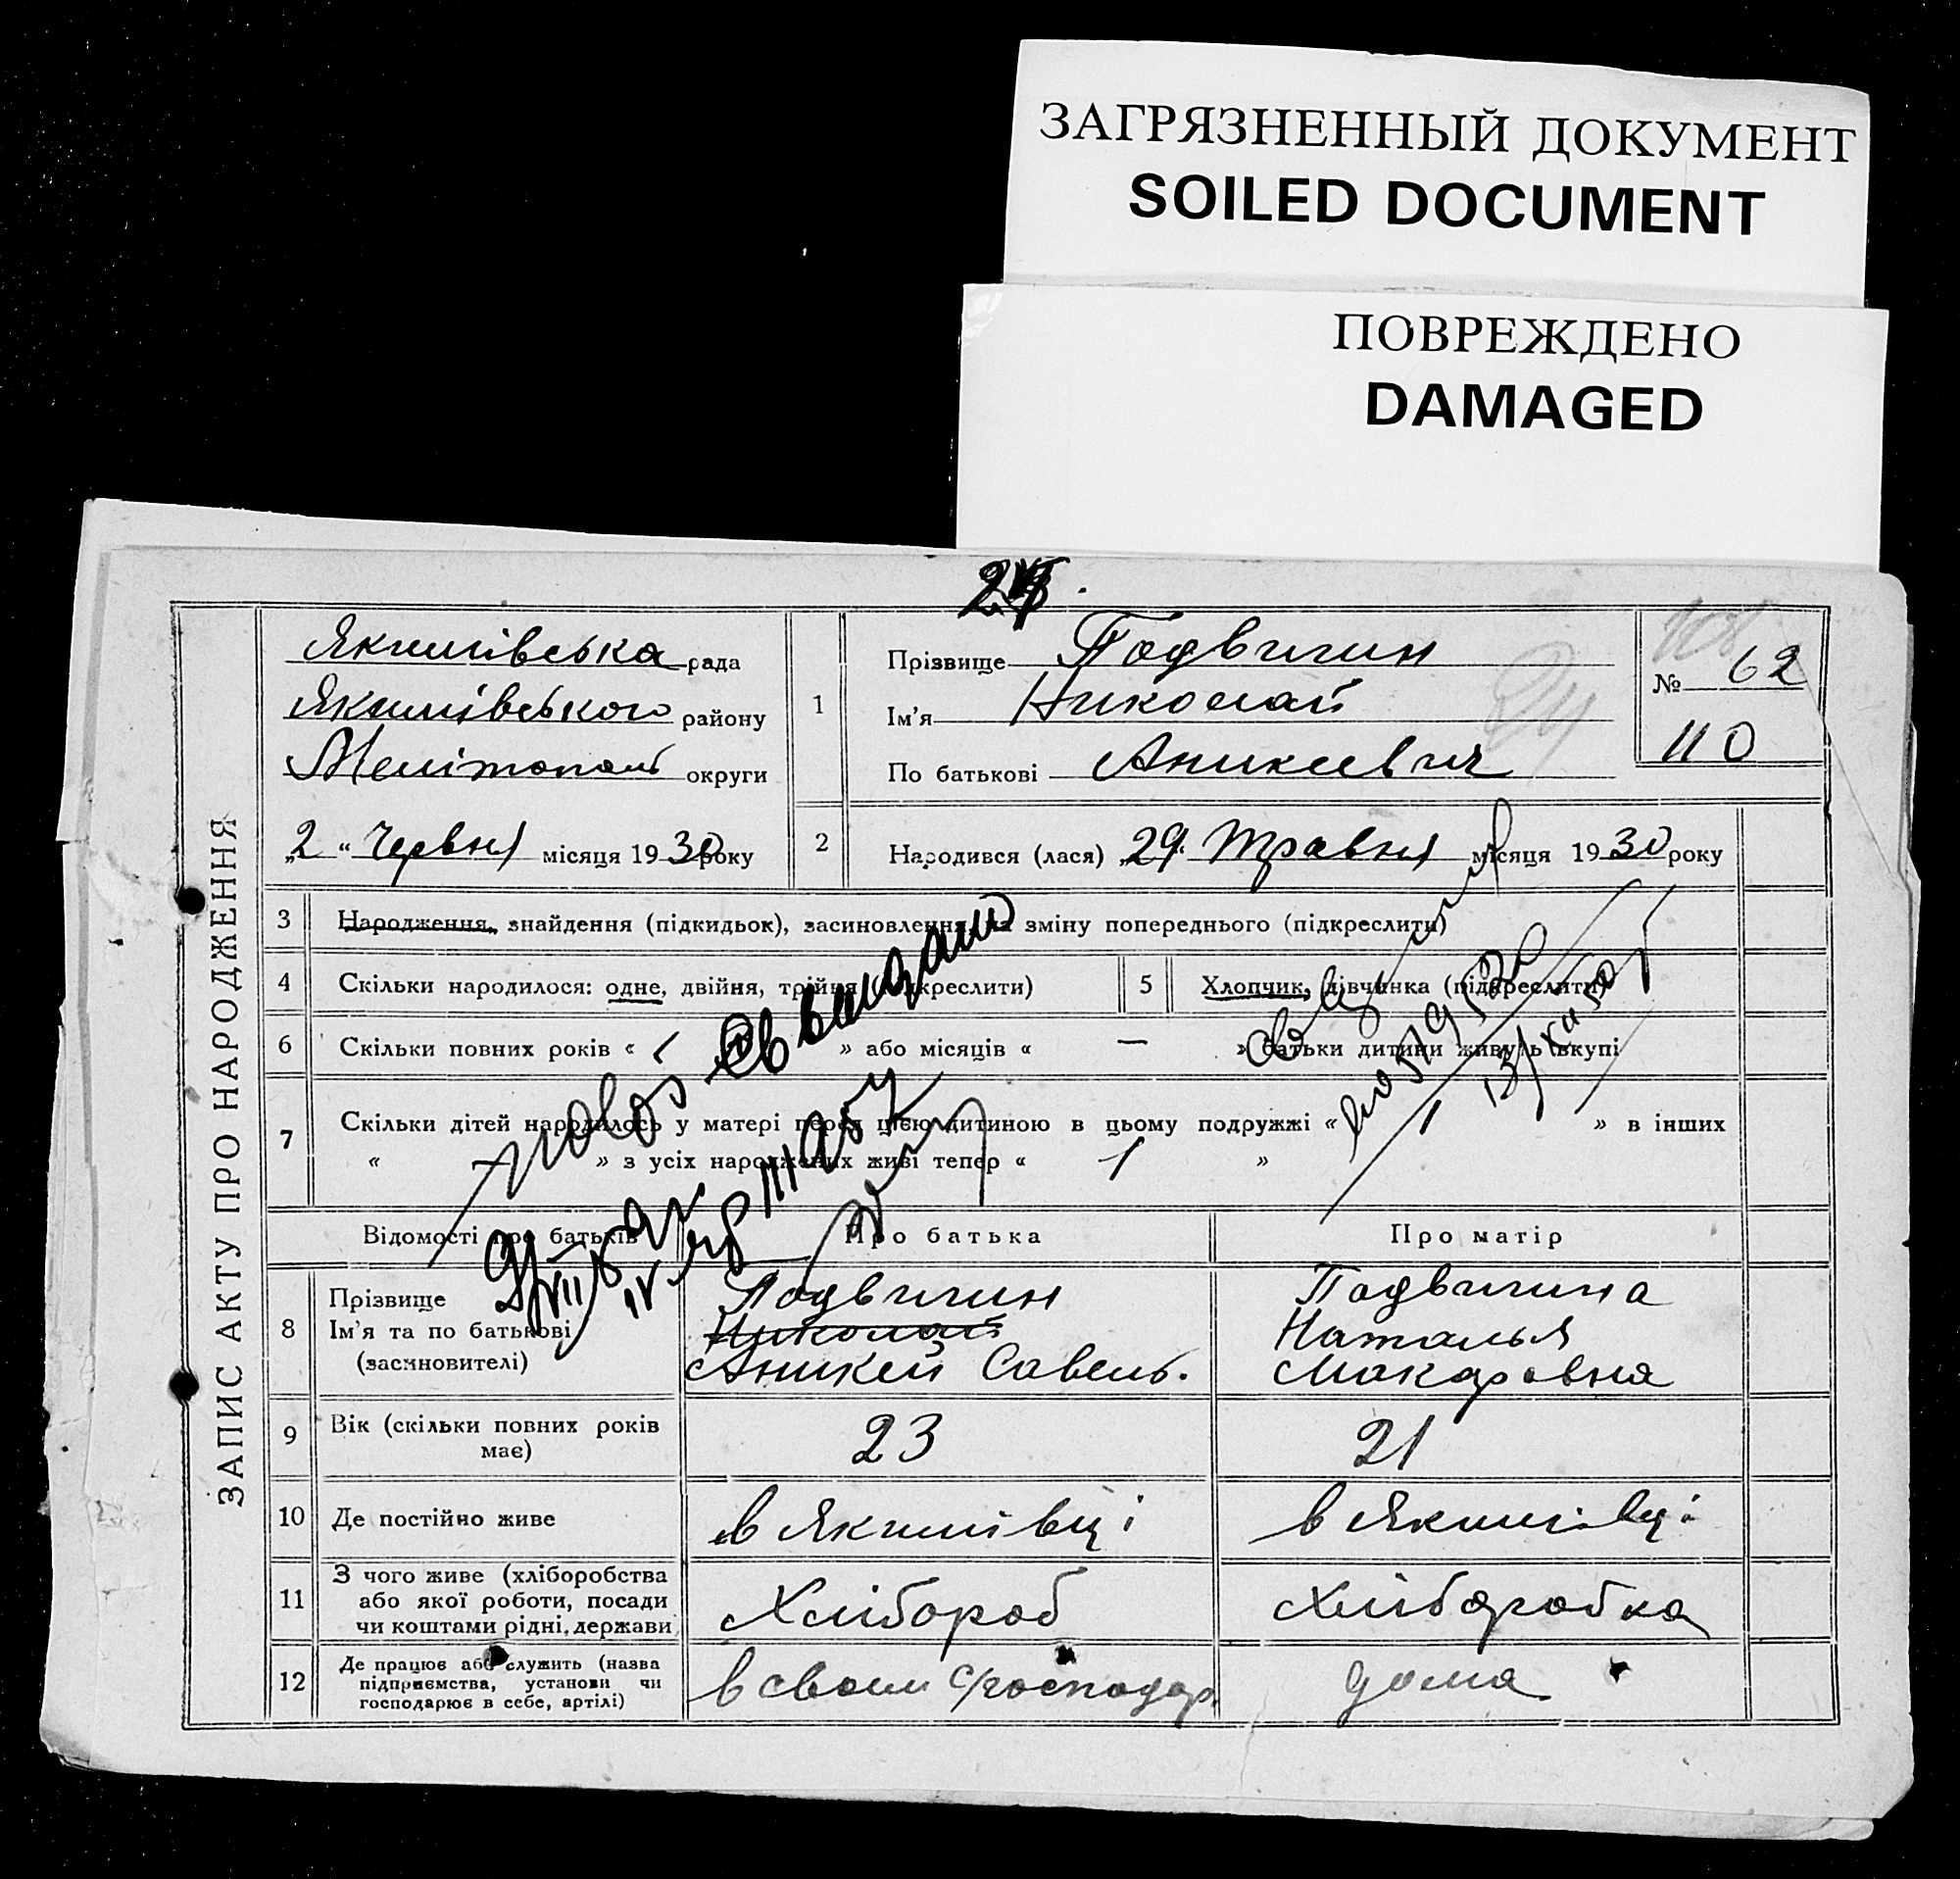 ЗАГРЯЗНЕННЫЙ ДОКУМЕНТ
SOILED DOCUMENT
ПОВРЕЖДЕНО
DAMAGED
ЗАПИС АКТУ ПРО НАРОДЖЕННЯ
Якимівська рада
Якимівського району
Мелітополь округи
„2“ Червня місяця 1930 року
1
Прізвище Подвигин
Ім'я Николай
По батькові Аникеевич
№ 62
110
2
Народився (лася) „29“ Травня місяця 1930 року
3 Народження, знайдення (підкидьок), засиновлення, на зміну попереднього (підкреслити)
4 Скільки народилося: одне, двійня, трійня (підкреслити)
5 Хлопчик, дівчинка (підкреслити)
6 Скільки повних років « – » або місяців « — » батьки дитини живуть вкупі
7 Скільки дітей народилось у матері перед цією дитиною в цьому подружжі « 1 » в інших
« » з усіх народжених живі тепер « 1 »
Відомості про батьків Про батька Про матір
8 Прізвище Подвигин Подвигина
Ім'я та по батькові Николай Наталья
(засиновителі) Аникей Савель. Макаровна
9 Вік (скільки повних років має) 23 21
10 Де постійно живе в Якимівці в Якимівці
11 З чого живе (хліборобства
або якої роботи, посади
чи коштами рідні, держави Хлібороб Хліборобка
12 Де працює або служить (назва
підприємства, установи чи
господарює в себе, артілі) в своем с/господар. дома